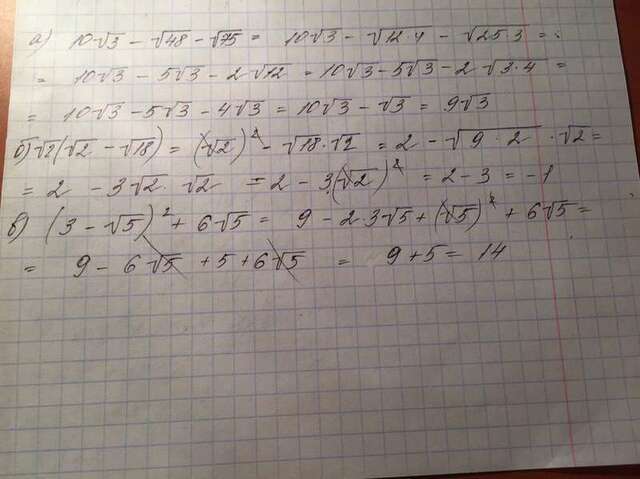 а) 10√3 - √48 - √75 = 10√3 - √12·4 - √25·3 =
= 10√3 - 5√3 - 2√12 = 10√3 - 5√3 - 2√3·4 =
= 10√3 - 5√3 - 4√3 = 10√3 - √3 = 9√3
б) √2(√2 - √18) = (√2)² - √18·√2 = 2 - √9·2 · √2 =
= 2 - 3√2·√2 = 2 - 3(√2)² = 2 - 3 = -1
в) (3 - √5)² + 6√5 = 9 - 2·3√5 + (√5)² + 6√5 =
= 9 - 6√5 + 5 + 6√5 = 9 + 5 = 14